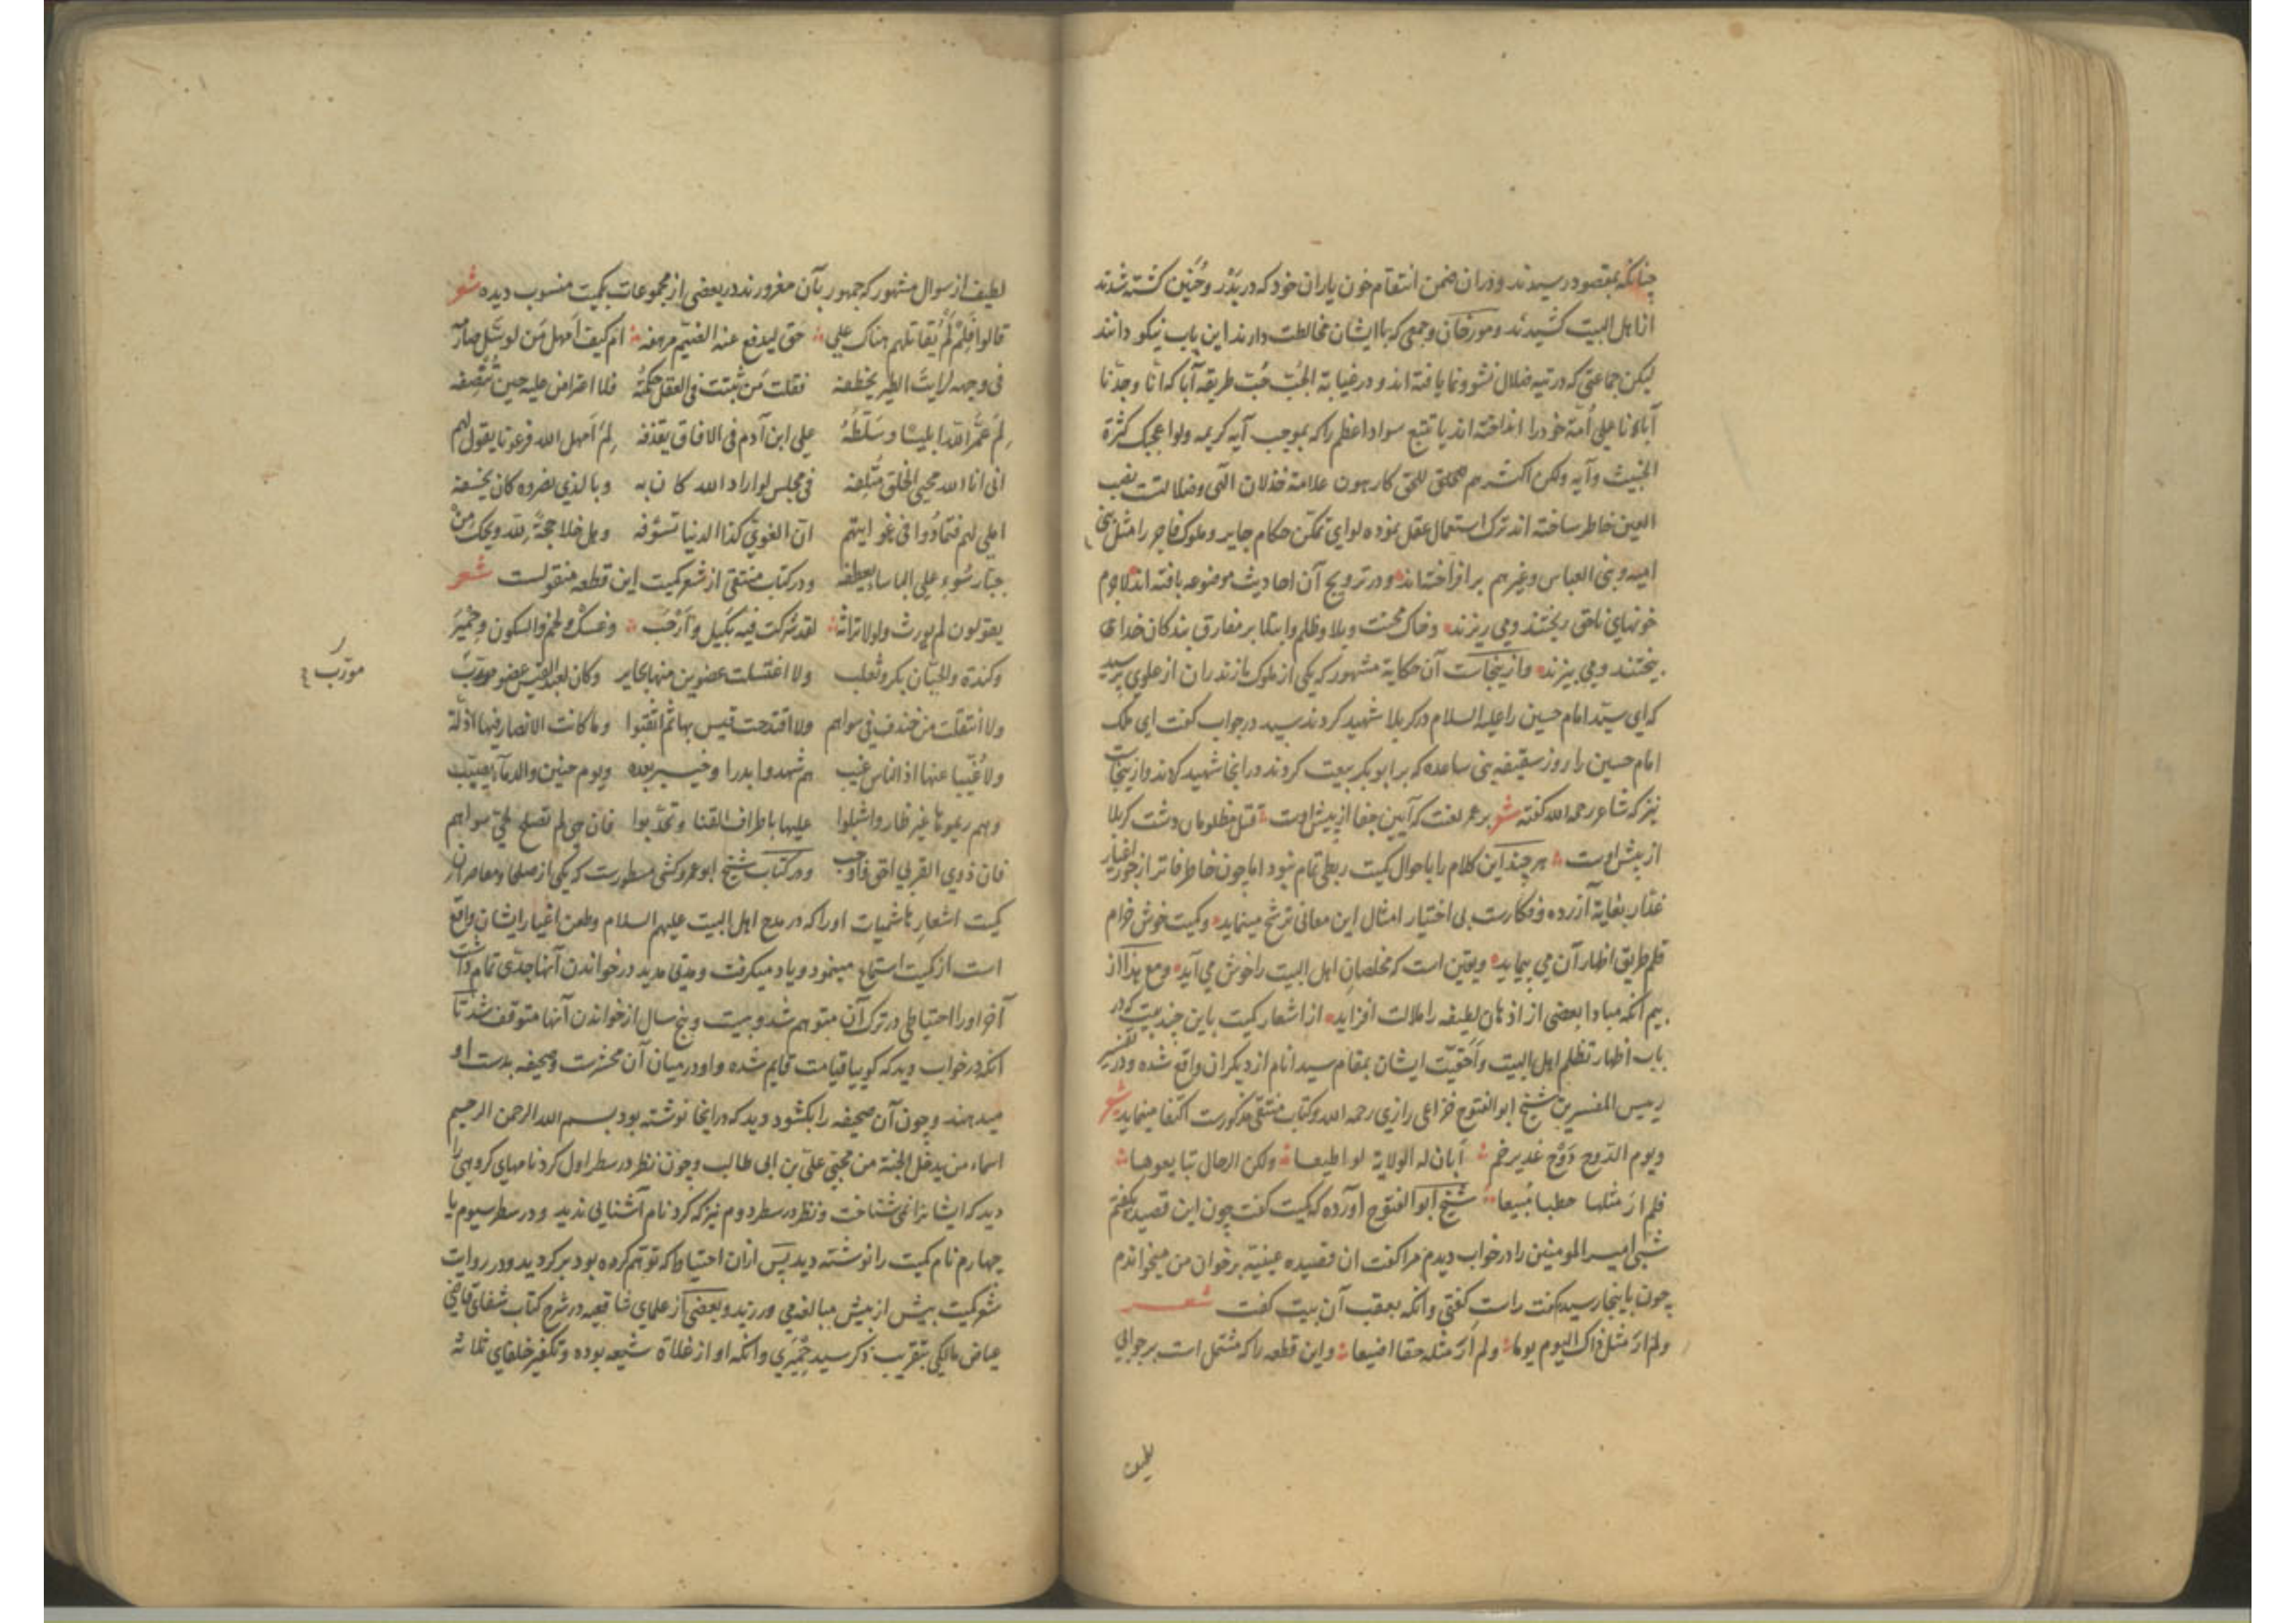 چنانکه بمقصود رسیدند و در ان ضمن انتقام خون یاران خود که در بدر و حنین کشته شدند
از اهل البیت کشیدند و مورخان و جمعی که با ایشان مخالطت دارند این باب نیکو دانند
لیکن جماعتی که در تیه ضلال نشو و نما یافته اند و در غیابة الجُبّ حُبّ طریقه آبا که انا وجدنا
آباءنا علی اُمّة خود را انداخته اند یا تتبع سواد اعظم را که بموجب آیه کریمه ولو اعجبک کثرة
الخبیث و آیه ولکن اکثرهم للحق کارهون علامة خذلان الهی و ضلالتست نصب
العین خاطر ساخته اند ترک استعمال عقل نموده لوای تمکن حکام جایر و ملوک فاجر را مثل بنی
امیه و بنی العباس و غیرهم بر افراخته اند و در ترویج آن احادیث موضوعه بافته اند لاجرم
خونهای ناحق ریختند و می ریزند و خاک محنت و بلا و ظلم و ابتلا بر مفارق بندگان خدای
بیختند و می بیزند و ازینجاست آن حکایة مشهور که یکی از ملوک مازندران از علوی پرسید
که ای سید امام حسین را علیه السلام در کربلا شهید کردند سید در جواب گفت ای ملک
امام حسین را روز سقیفه بنی ساعده که بر ابو بکر بیعت کردند در انجا شهید کردند و ازینجاست
نیز که شاعر رحمه الله گفته شعر بر عمر لعنت که آیین جفا از پیش اوست قتل مظلومان دشت کربلا
از پیش اوست هر چند این کلام را با حوال کمیت ربطی تمام نبود اما چون خاطر فاتر از جور اغیار
غدار بغایة آزرده و فکارست بی اختیار امثال این معانی ترشح مینماید و کمیت خوش خرام
قلم طریق اظهار آن می پیماید و یقین است که مخلصان اهل البیت را خوش می آید و مع هذا از
بیم آنکه مبادا بعضی از اذهان لطیفه را ملالت افزاید از اشعار کمیت باین چند بیت که در
باب اظهار تظلم اهل البیت و اَحقیّت ایشان بمقام سید انام از دیگران واقع شده و در تفسیر
رییس المفسرین شیخ ابو الفتوح خزاعی رازی رحمه الله و کتاب منتقی مذکورست اکتفا مینماید شعر
ویوم الدّوح دَوْح غدیر خم اَبان له الولایة لو اطیعا ولکن الرجال تبایعوها
فلم ارَ مثلها خطبا مُبیعا شیخ ابو الفتوح آورده که کمیت گفت چون این قصیده بگفتم
شبی امیر المومنین را در خواب دیدم مرا گفت ان قصیده عینیّه بر خوان من میخواندم
چون باینجا رسید گفت راست گفتی و انکه بعقب آن بیت گفت شعر
ولم ارَ مثل ذاک الیوم یوما ولم اَرَ مثله حقا اضیعا و این قطعه را که مشتمل است بر جوابی
لطیف
لطیف از سوال مشهور که جمهور بآن مغرورند در بعضی از مجموعات بکمیت منسوب دیده شعر
قالوا فلِمْ لَمْ یُقاتلهم هناک علی حق لیدفع عنه الضیم مرهفه ام کیف اَمهل مَن لو سَلّ صارمه
فی وجهه لرایتَ الطیر یخطفه فقلت مَن ثبتت فی العقل حکمته فلا اعتراض علیه حین تُنْصفه
لِمْ عَمَّر الله ابلیسا و سَلّطَهُ علی ابن آدم فی الافاق یقذفه لِمْ اَمهل الله فرعونا یقول لهم
انی انا الله محیی الخلق مُتلِفه فی مجلس لو اراد الله کان به وبالذی نصروه کان یخسفه
املی لهم فتمادُوا فی غوایتهم ان الغوی کذا الدنیا تسوّفه وهل خلا حجةً لله ویحک من
جبار سُوء علی الباساء یعطفه و در کتاب منتقی از شعر کمیت این قطعه منقولست شعر
یقولون لم یورث ولولا تراثه لقد شرکت فیه بکیل و اَرْحَب وعَکّ ولخم والسکون وحمیر
وکندة والحیّان بکر و تغلب ولا اغتسلت عضوین منها یحابر وکان لعبد القیس عضو مورّب
مورّب ح
ولا انتقلت من خندف فی سواهم ولا اقتدحت قیس بها ثم اثقبوا وما کانت الانصار فیها اذلّة
ولا غُیّبا عنها اذ الناس غیب هم شهدوا بدرا وخیبر بعده ویوم حنین والدماء تصبّب
وهم ریموها غیر ظار واشبلوا علیها باطراف القنا وتحدّبوا فان هی لم تصلح لحی سواهم
فان ذوی القربی احق واوجب و در کتاب شیخ ابو عمرو کشی مسطورست که یکی از صلحا و معاصران
کمیت اشعار هاشمیات او را که در مدح اهل البیت علیهم السلام و طعن اغیار ایشان واقع
است از کمیت استماع مینمود و یاد میگرفت و مدتی مدید در خواندن آنها جدّی تمام داشت
آخر او را احتیاطی در ترک آن متوهم شد و بیست و پنج سال از خواندن آنها متوقف شد تا
آنکه در خواب دید که گوییا قیامت قایم شده و او در میان آن محشرست و صحیفه بدست او
میدهند و چون آن صحیفه را بگشود دید که در اینجا نوشته بود بسم الله الرحمن الرحیم
اسماء من یدخل الجنة من محبی علیّ بن ابی طالب و چون نظر در سطر اول کرد نامهای گروهی را
دید که ایشانرا نمی شناخت و نظر در سطر دوم نیز که کرد نام آشنایی ندید و در سطر سیوم یا
چهارم نام کمیت را نوشته دید پس از ان احتیاط که توهم کرده بود بر گردید و در روایت
شعر کمیت بیش از پیش مبالغه می ورزید و بعضی از علمای شافعیه در شرح کتاب شفای قاضی
عیاض مالکی بتقریب ذکر سید حِمْیَری و انکه او از غلاة شیعه بوده و تکفیر خلفای ثلاثه